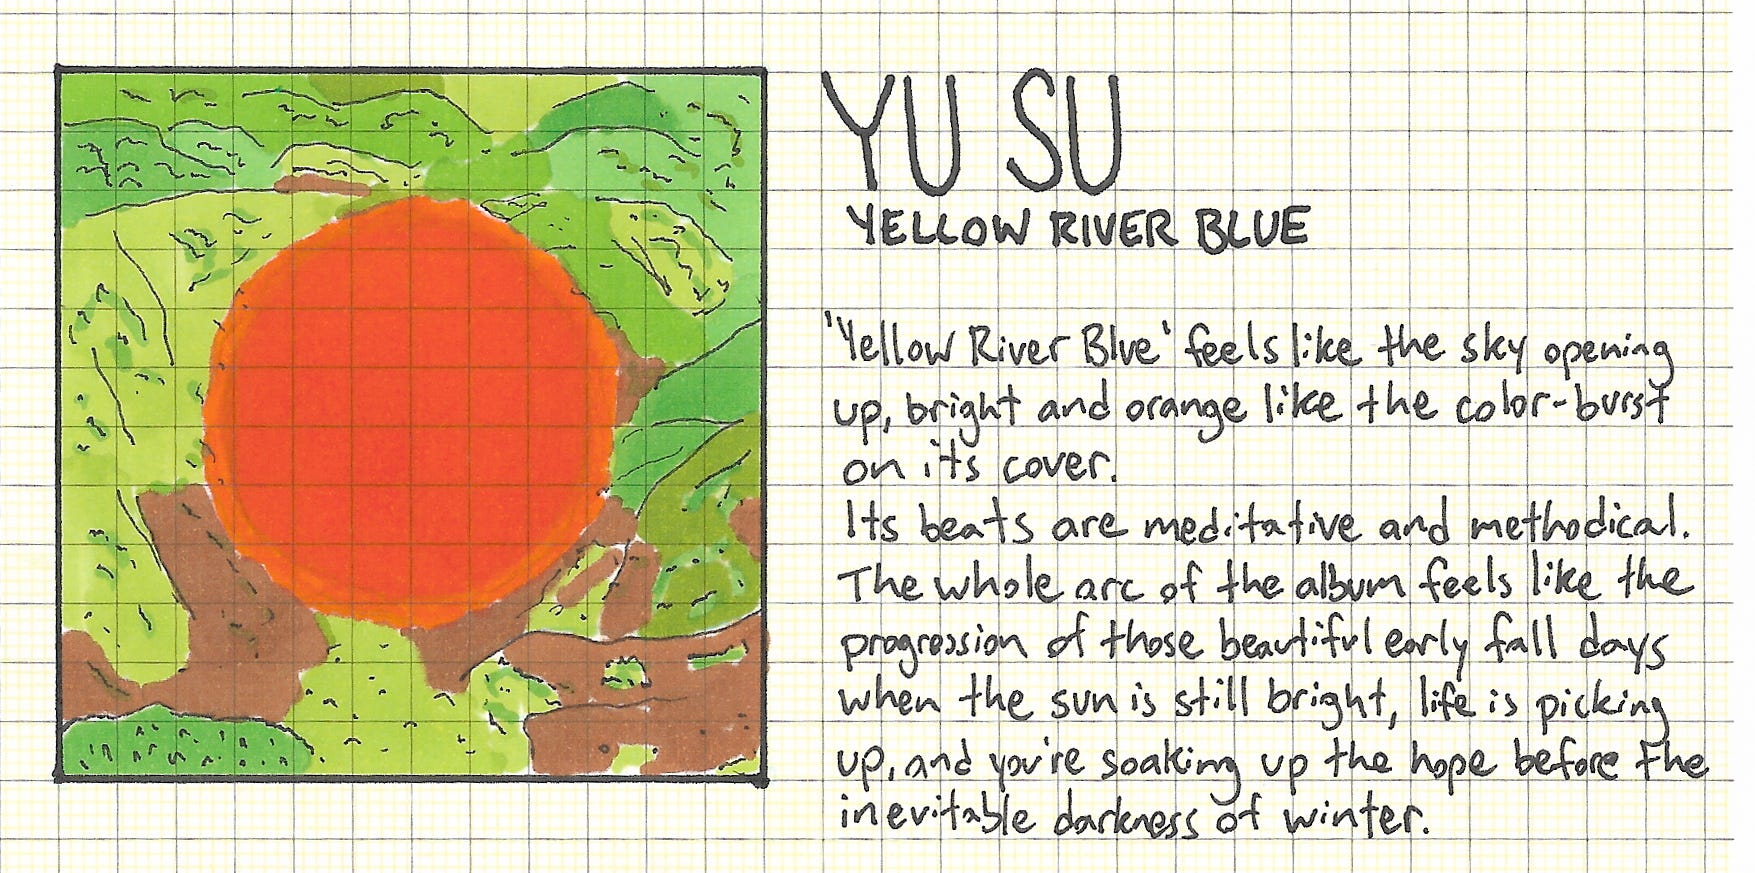 YU SU
YELLOW RIVER BLUE
'Yellow River Blue' feels like the sky opening
up, bright and orange like the color-burst
on its cover.
Its beats are meditative and methodical.
The whole arc of the album feels like the
progression of those beautiful early fall days
when the sun is still bright, life is picking
up, and you're soaking up the hope before the
inevitable darkness of winter.